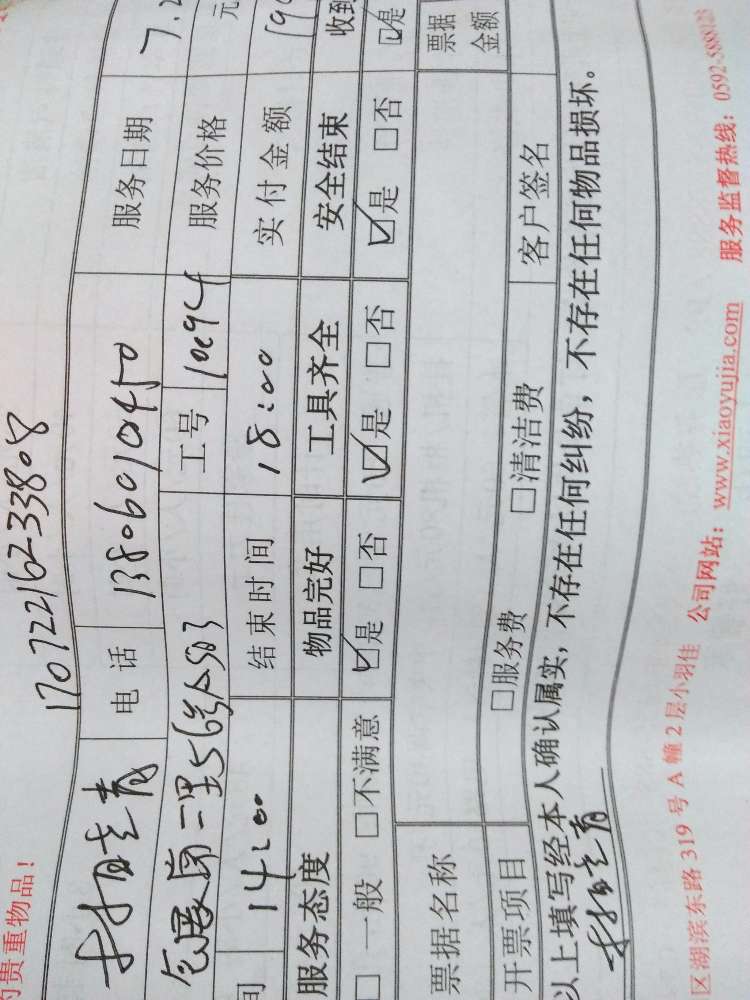 的贵重物品！
17072216233808
电话 13806010450 服务日期 7.2
工号 10094 服务价格 元
间 14:00 结束时间 18:00 实付金额
服务态度 物品完好 工具齐全 安全结束 收到
□ 一般 □不满意 ☑是 □否 ☑是 □否 ☑是 □否 ☑是
票据名称 票据金额
开票项目 □服务费 □清洁费 客户签名
以上填写经本人确认属实，不存在任何纠纷，不存在任何物品损坏。
区湖滨东路 319 号 A 幢 2 层小羽佳 公司网站：www.xiaoyujia.com 服务监督热线：0592-5888123